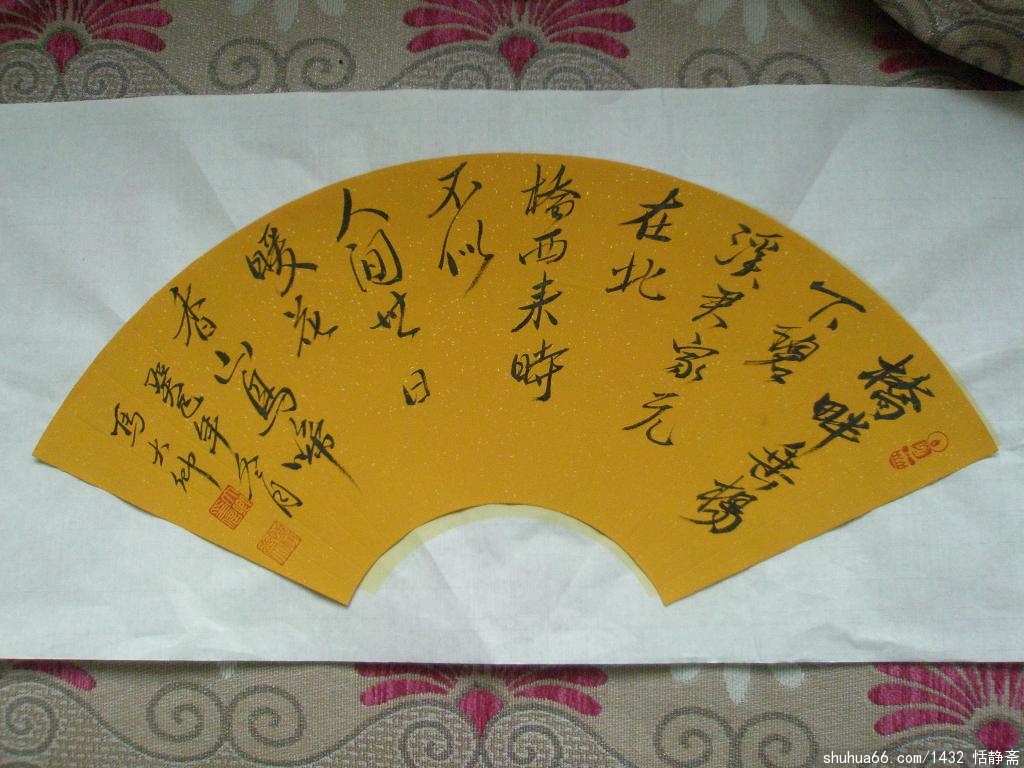 橋畔垂楊
下碧
溪君家元
在北
橋西来時
不似
人間世日
暖花
香山鳥啼
癸巳年冬月
shuhua66.com/1432 恬静斋